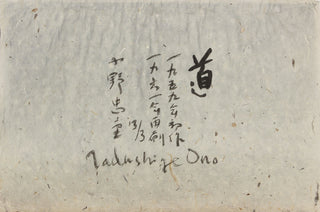 道
一九五九年初作
一九六一年再刻
13/3
小野忠重
Tadashige Ono